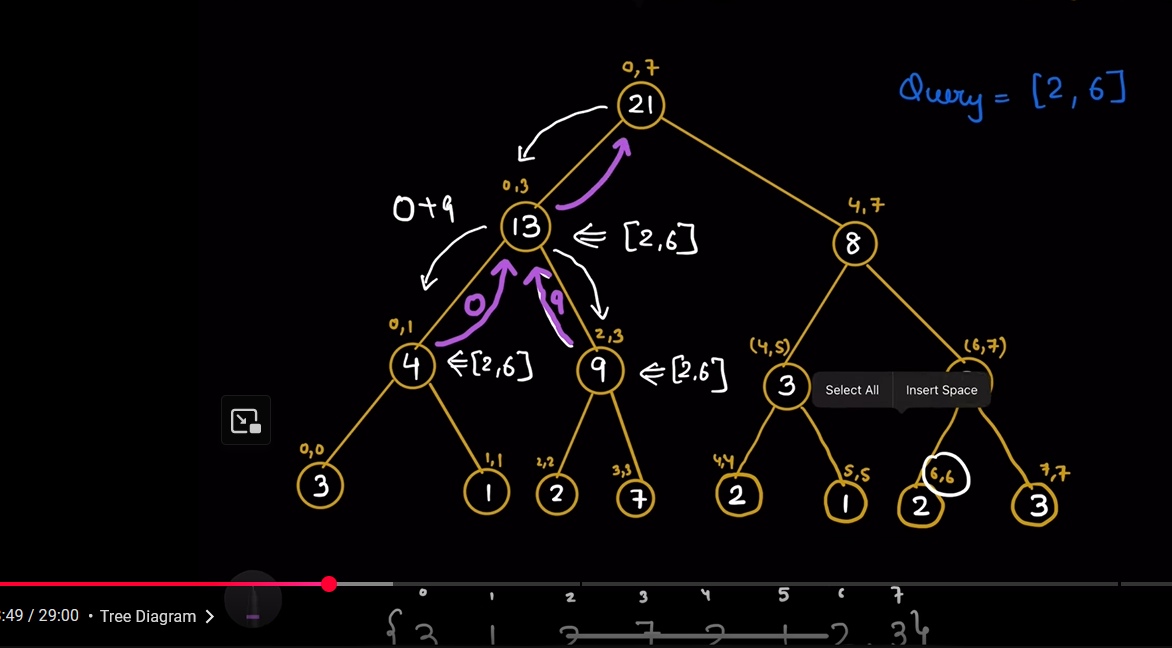 0,7
21
Query = [2,6]
0,3
13
0+9
⇐ [2,6]
4,7
8
0
9
0,1
4
⇐[2,6]
2,3
9
⇐[2,6]
(4,5)
3
(6,7)
Select All
Insert Space
0,0
3
1,1
1
2,2
2
3,3
7
4,4
2
5,5
1
6,6
2
7,7
3
:49 / 29:00 • Tree Diagram >
0 1 2 3 4 5 6 7
{3 1 2 7 2 1 2 . 3}